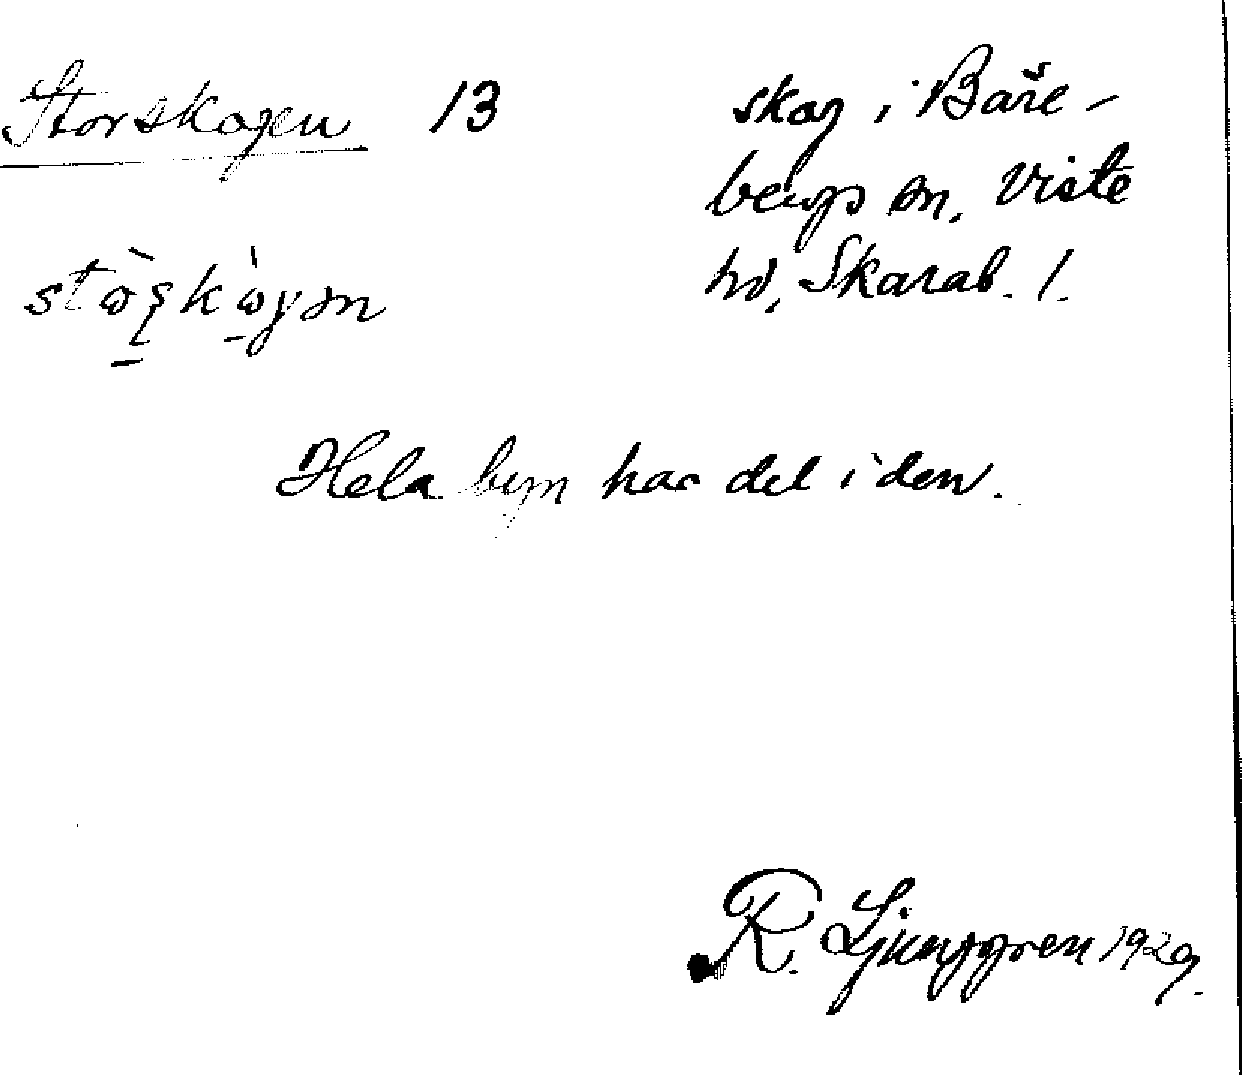 Storskagen 13
skog i Båre-
bergs sn, Viste
hd, Skarab. l.
Hela byn har del i den.
R. Ljunggren 1929.